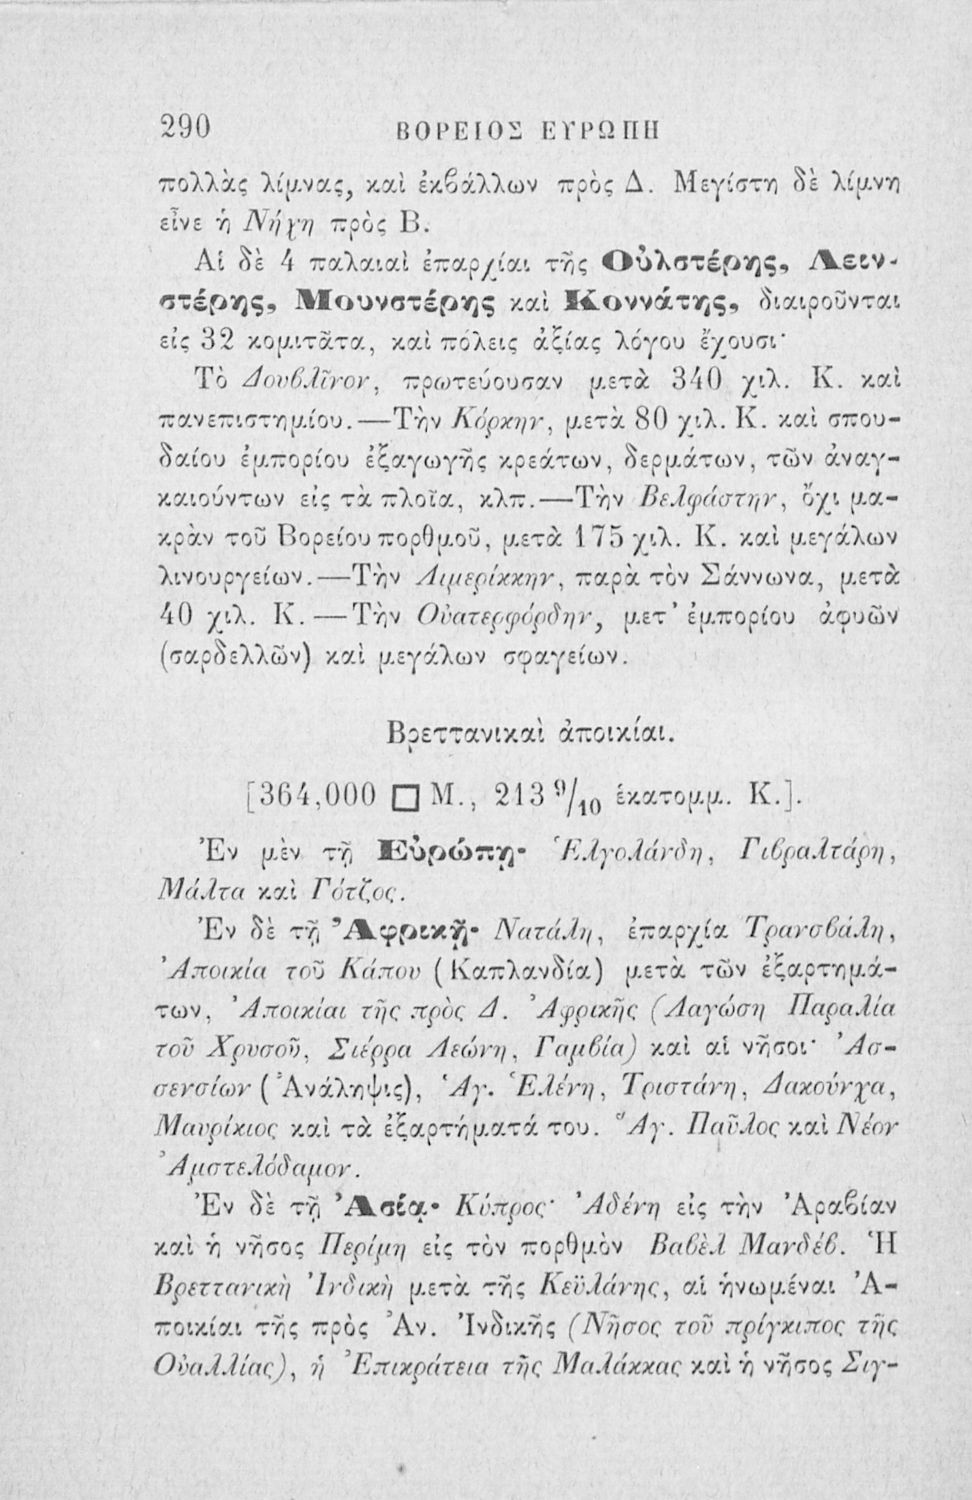 290 ΒΟΡΕΙΟΣ ΕΥΡΩΠΗ
πολλὰς λίμνας, καὶ ἐκβάλλων πρὸς Δ. Μεγίστη δὲ λίμνη
εἶνε ἡ Νήχη πρὸς Β.
Αἱ δὲ 4 παλαιαὶ ἐπαρχίαι τῆς Οὐλστέρης, Λειν-
στέρης, Μουνστέρης καὶ Κοννάτης, διαιροῦνται
εἰς 32 κομιτᾶτα, καὶ πόλεις ἀξίας λόγου ἔχουσι·
Τὸ Δουβλῖνον, πρωτεύουσαν μετὰ 340 χιλ. Κ. καὶ
πανεπιστημίου.—Τὴν Κόρκην, μετὰ 80 χιλ. Κ. καὶ σπου-
δαίου ἐμπορίου ἐξαγωγῆς κρεάτων, δερμάτων, τῶν ἀναγ-
καιούντων εἰς τὰ πλοῖα, κλπ.—Τὴν Βελφάστην, ὄχι μα-
κρὰν τοῦ Βορείου πορθμοῦ, μετὰ 175 χιλ. Κ. καὶ μεγάλων
λινουργείων.—Τὴν Λιμερίκκην, παρὰ τὸν Σάννωνα, μετὰ
40 χιλ. Κ.—Τὴν Οὐατερφόρδην, μετ' ἐμπορίου ἀφυῶν
(σαρδελλῶν) καὶ μεγάλων σφαγείων.
Βρεττανικαὶ ἀποικίαι.
[364,000 □ Μ., 213 9/10 ἑκατομμ. Κ.].
Ἐν μὲν τῇ Εὐρώπῃ· Ἑλγολάνδη, Γιβραλτάρη,
Μάλτα καὶ Γότζος.
Ἐν δὲ τῇ Ἀφρικῇ· Νατάλη, ἐπαρχία Τρανσβάλη,
Ἀποικία τοῦ Κάπου (Καπλανδία) μετὰ τῶν ἐξαρτημά-
των, Ἀποικίαι τῆς πρὸς Δ. Ἀφρικῆς (Λαγώση Παραλία
τοῦ Χρυσοῦ, Σιέρρα Λεώνη, Γαμβία) καὶ αἱ νῆσοι· Ἀσ-
σενσίων (Ἀνάληψις), Ἁγ. Ἑλένη, Τριστάνη, Δακούνχα,
Μαυρίκιος καὶ τὰ ἐξαρτήματά του. Ἅγ. Παῦλος καὶ Νέον
Ἀμστελόδαμον.
Ἐν δὲ τῇ Ἀσίᾳ· Κύπρος· Ἀδένη εἰς τὴν Ἀραβίαν
καὶ ἡ νῆσος Περίμη εἰς τὸν πορθμὸν Βαβὲλ Μανδέβ. Ἡ
Βρεττανικὴ Ἰνδικὴ μετὰ τῆς Κεϋλάνης, αἱ ἡνωμέναι Ἀ-
ποικίαι τῆς πρὸς Ἀν. Ἰνδικῆς (Νῆσος τοῦ πρίγκιπος τῆς
Οὐαλλίας), ἡ Ἐπικράτεια τῆς Μαλάκκας καὶ ἡ νῆσος Σιγ-